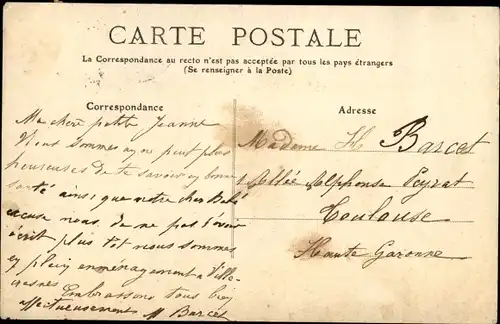 CARTE POSTALE
La Correspondance au recto n'est pas acceptée par tous les pays étrangers
(Se renseigner à la Poste)
Correspondance
Adresse
Ma chère petite Jeanne
Nous sommes on ne peut plus
heureuses de te savoir en bonne
santé ainsi que notre cher Bébé
excuse nous de ne pas t'avoir
écrit plus tôt nous sommes
en plein emménagement a
Embrassons tous bien
affectueusement M Barcet
Madame H Barcet
Allée Alphonse Peyrat
Toulouse
Haute Garonne